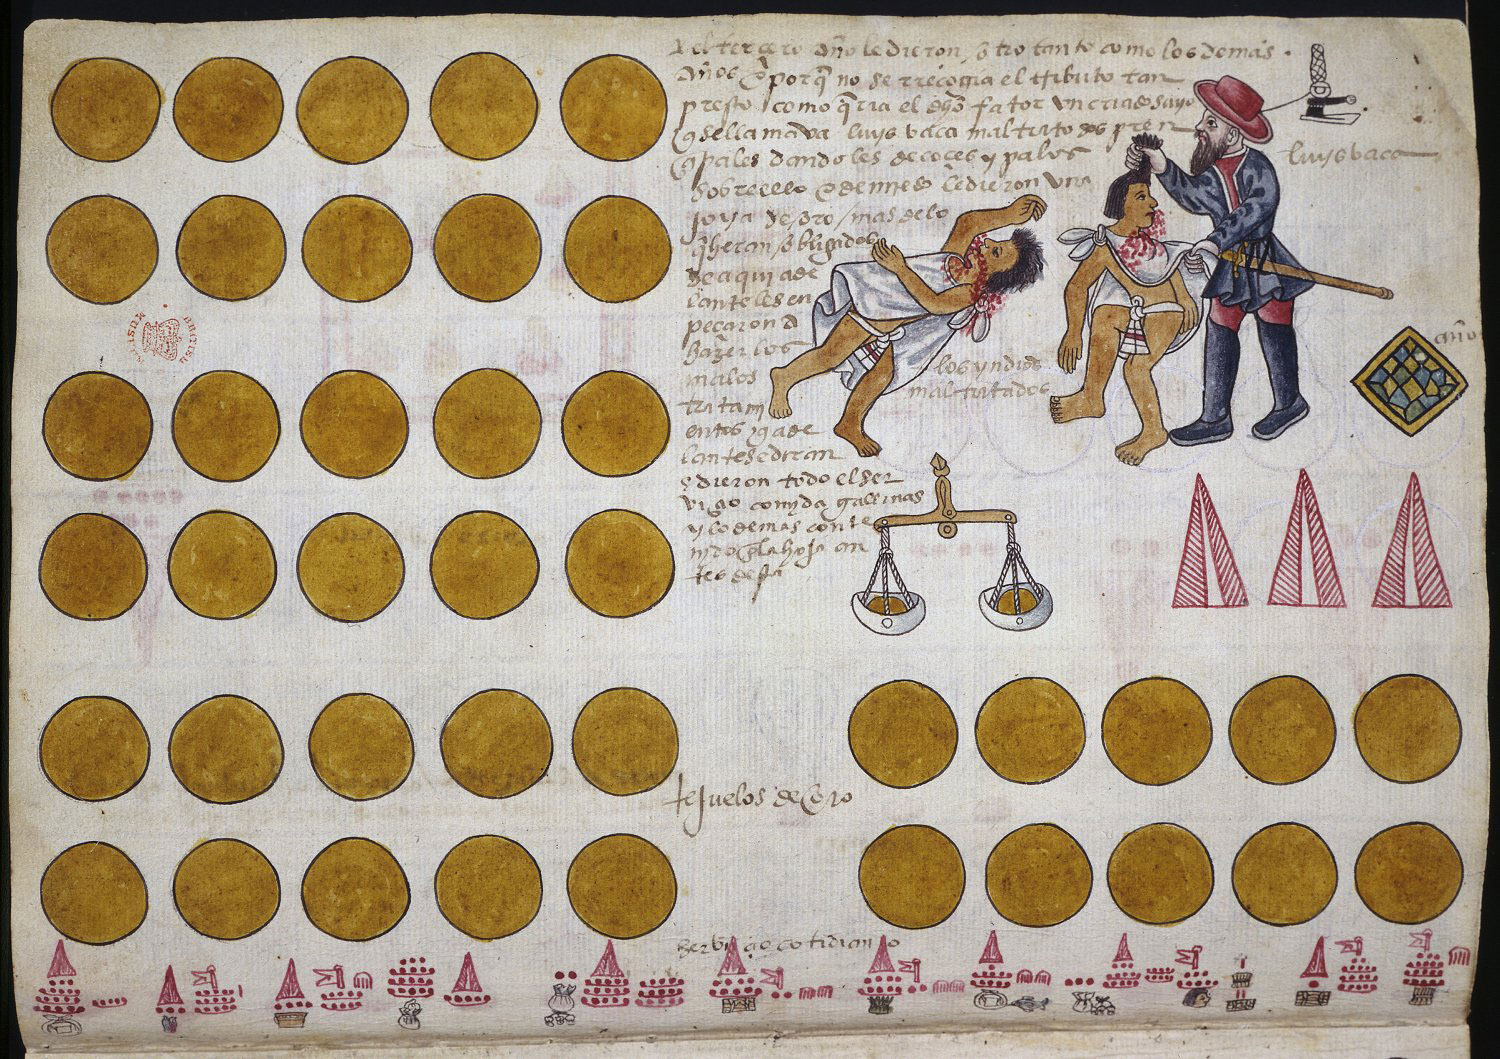 y el tercero año le dieron otro tanto como los demas
años y porq̃ no se rrecogia el tributo tan
presto como q̃ria el dho fator un criado suyo
q se llamava luys vaca maltrato los prin
cipales dandoles de coces y palos
sobre ello y de miedo le dieron una
joya de oro mas de lo
q̃ heran obligados
de aqui ade
lante les en
peçaron a
hazer los
malos
tratami
entos q ade
lante se diran
y dieron todo el ser
viçio comida gallinas
y lo demas conte
nido en la hoja an
tes desta
luys vaca
año
los yndios
maltratados
tejuelos de oro
serbiçio cotidiano
BRITISH MUSEUM